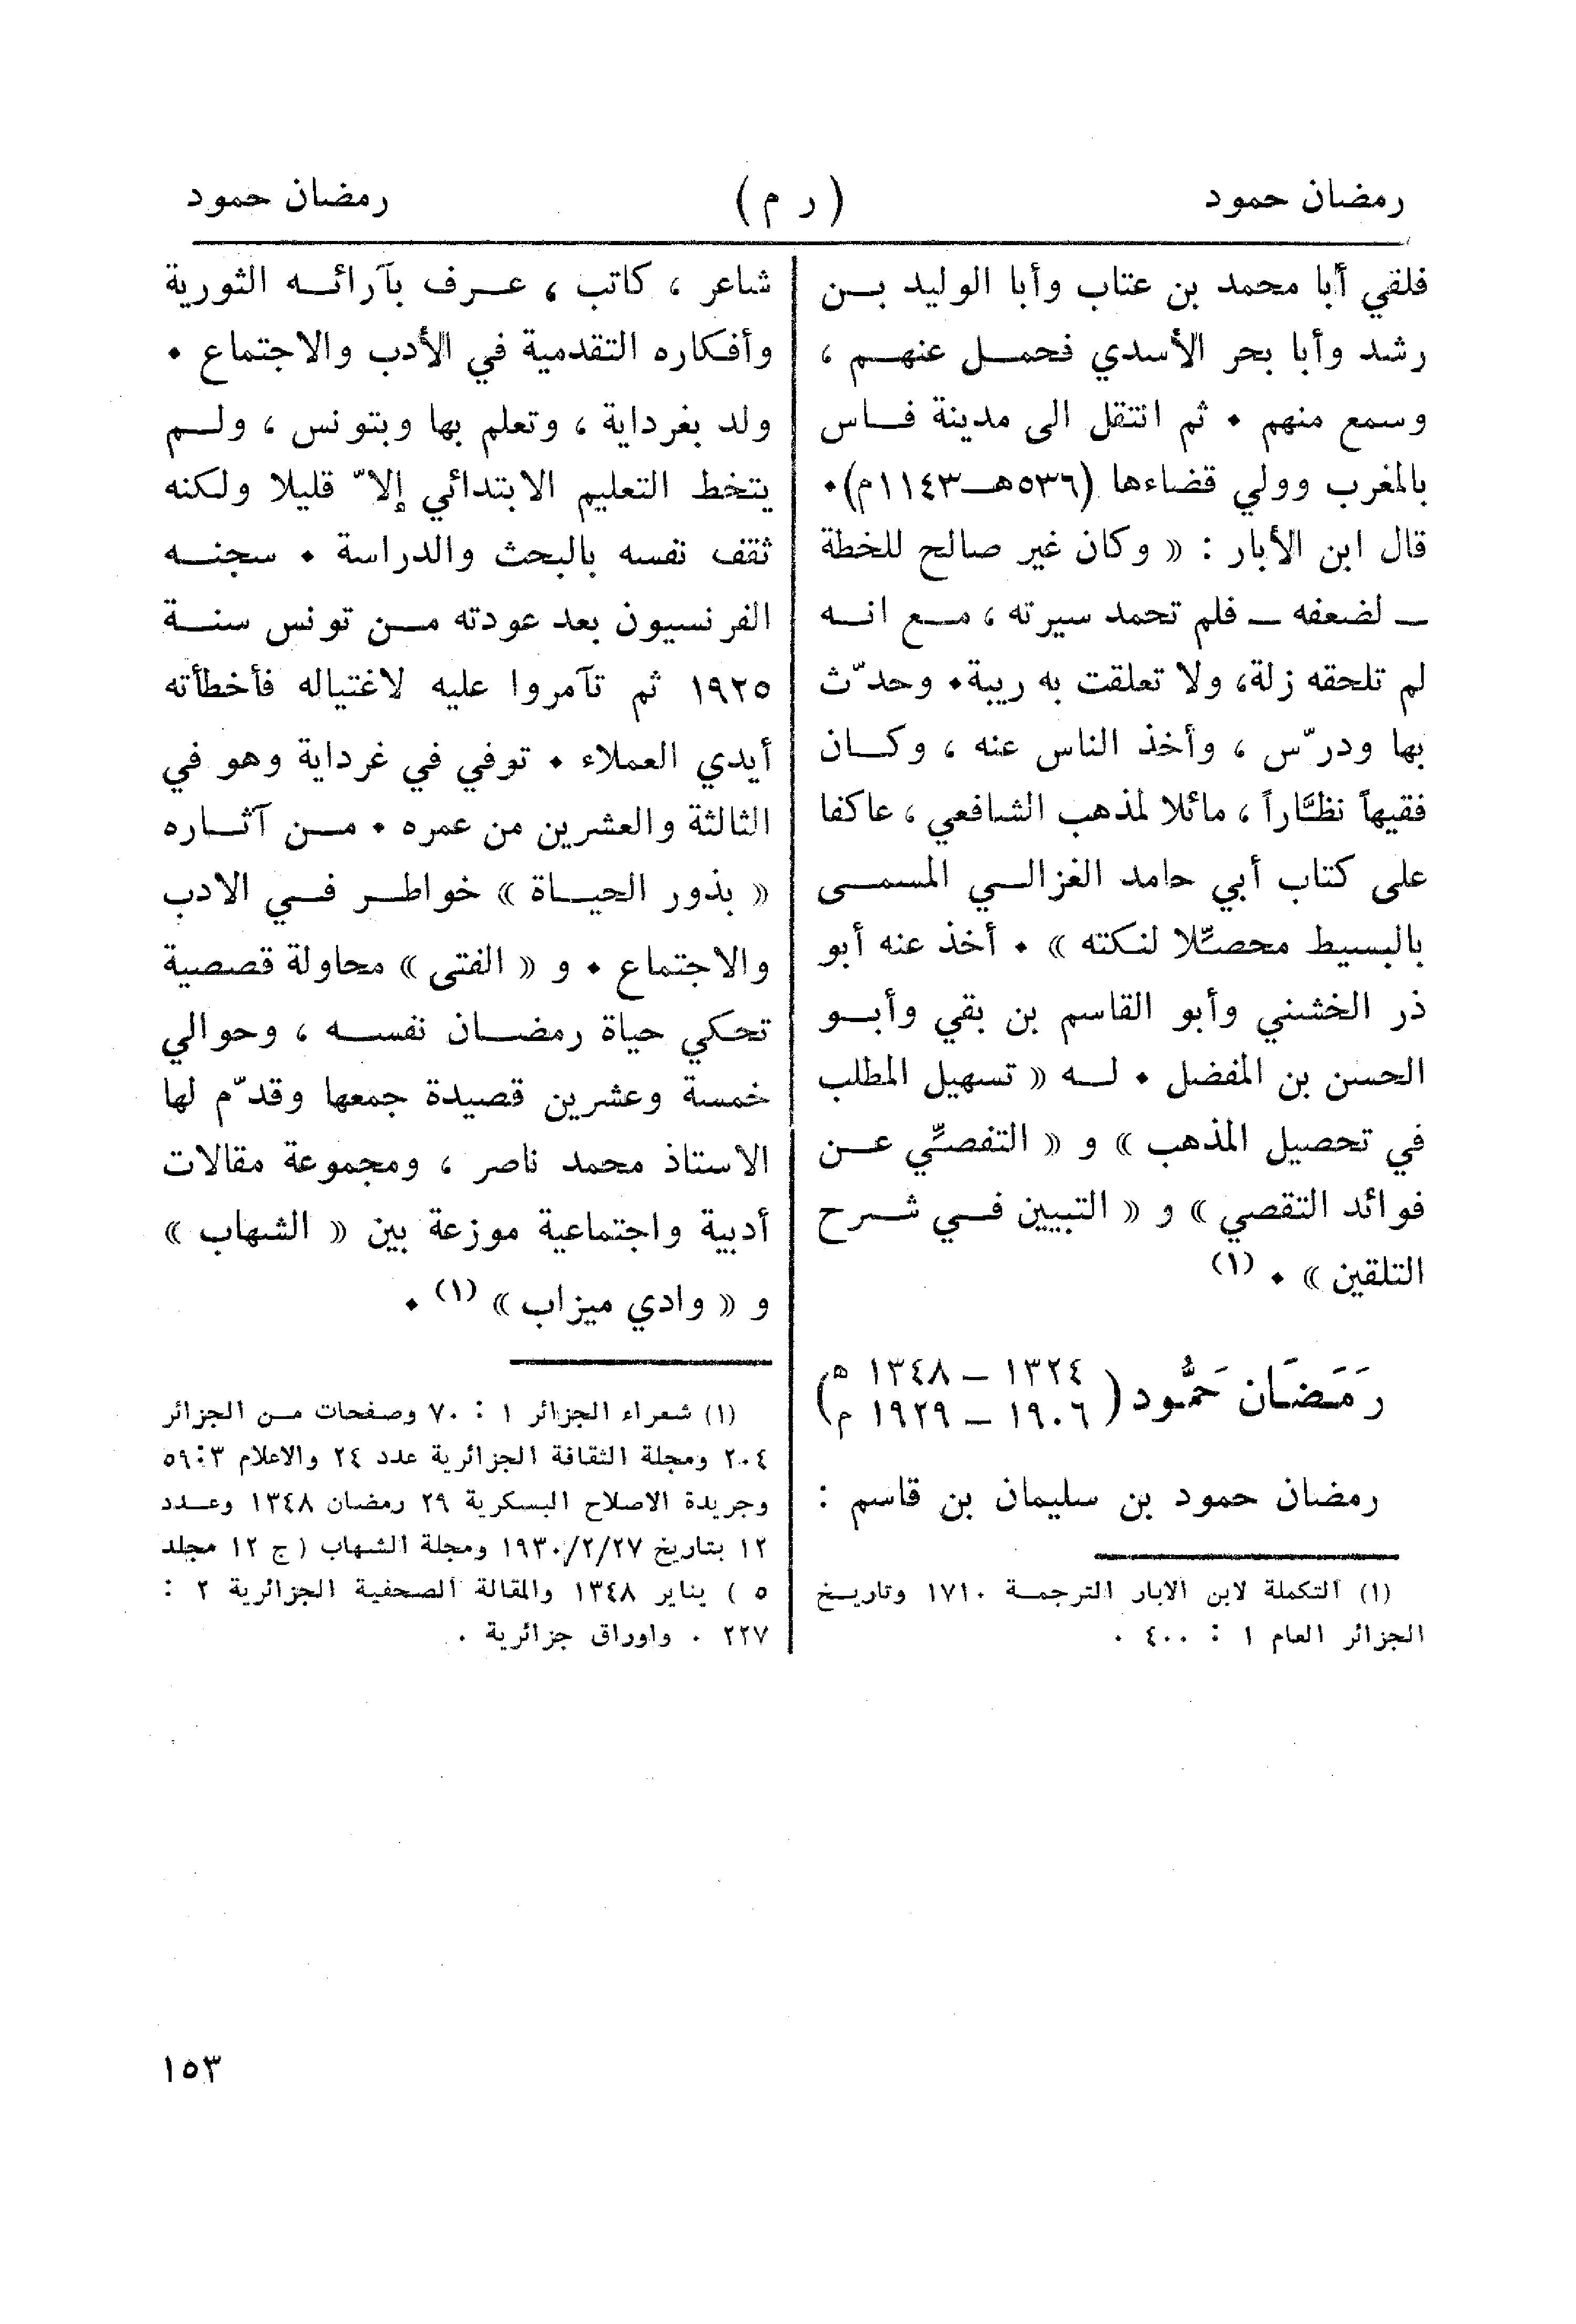 رمضان حمود (ر م) رمضان حمود
فلقي أبا محمد بن عتاب وأبا الوليد بن
رشد وأبا بحر الأسدي فحمل عنهم ،
وسمع منهم . ثم انتقل الى مدينة فاس
بالمغرب وولي قضاءها (٥٣٦هـ–١١٤٣م).
قال ابن الأبار : « وكان غير صالح للخطة
– لضعفه – فلم تحمد سيرته ، مع انه
لم تلحقه زلة، ولا تعلقت به ريبة. وحدّث
بها ودرّس ، وأخذ الناس عنه ، وكان
فقيهاً نظّاراً ، مائلا لمذهب الشافعي ، عاكفا
على كتاب أبي حامد الغزالي المسمى
بالبسيط محصّلا لنكته » . أخذ عنه أبو
ذر الخشني وأبو القاسم بن بقي وأبو
الحسن بن المفضل . له « تسهيل المطلب
في تحصيل المذهب » و « التفصّي عن
فوائد التقصي » و « التبيين في شرح
التلقين » . (١)
رَمَضَان حَمُّود ( ١٣٢٤ – ١٣٤٨ ه
١٩٠٦ – ١٩٢٩ م )
رمضان حمود بن سليمان بن قاسم :
(١) التكملة لابن الابار الترجمة ١٧١٠ وتاريخ
الجزائر العام ١ : ٤٠٠ .
شاعر ، كاتب ، عرف بآرائه الثورية
وأفكاره التقدمية في الأدب والاجتماع .
ولد بغرداية ، وتعلم بها وبتونس ، ولم
يتخط التعليم الابتدائي إلاّ قليلا ولكنه
ثقف نفسه بالبحث والدراسة . سجنه
الفرنسيون بعد عودته من تونس سنة
١٩٢٥ ثم تآمروا عليه لاغتياله فأخطأته
أيدي العملاء . توفي في غرداية وهو في
الثالثة والعشرين من عمره . من آثاره
« بذور الحياة » خواطر في الادب
والاجتماع . و « الفتى » محاولة قصصية
تحكي حياة رمضان نفسه ، وحوالي
خمسة وعشرين قصيدة جمعها وقدّم لها
الاستاذ محمد ناصر ، ومجموعة مقالات
أدبية واجتماعية موزعة بين « الشهاب »
و « وادي ميزاب » (١) .
(١) شعراء الجزائر ١ : ٧٠ وصفحات من الجزائر
٢٠٤ ومجلة الثقافة الجزائرية عدد ٢٤ والاعلام ٣:٥٩
وجريدة الاصلاح البسكرية ٢٩ رمضان ١٣٤٨ وعدد
١٢ بتاريخ ١٩٣٠/٢/٢٧ ومجلة الشهاب ( ج ١٢ مجلد
٥ ) يناير ١٣٤٨ والمقالة الصحفية الجزائرية ٢ :
٢٢٧ . واوراق جزائرية .
١٥٣